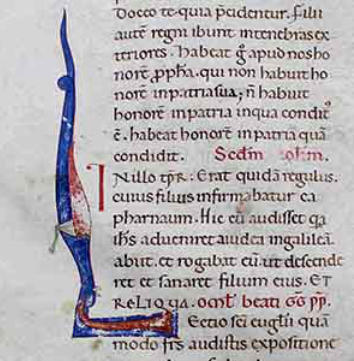 Docco te quia p̄cidentur. filii
autē regni ibunt in tenebras ex
teriores. Habeat g̊ apud nos ho
norē ꝓpħa. qui non habuit ho
norē in patria sua; n̄ habuit
honorē in patria in qua condit᷒
ē. habeat honorē in patria quā
condidit. Scd̄m Ioħm.
INillo tp̄r: Erat quidā regulus.
cuius filius infirmabatur ca
pharnaum. Hic cū audisset q̄a
iħs adveniret a iudea in galileā.
abiit. et rogabat eū. ut descende
ret et sanaret filium eius. ET
RELIQA. Om̄l̄ beati GḠ PP̄.
Lectio sc̄i eugl̄ii quā
modo fr̄s audistis expositione